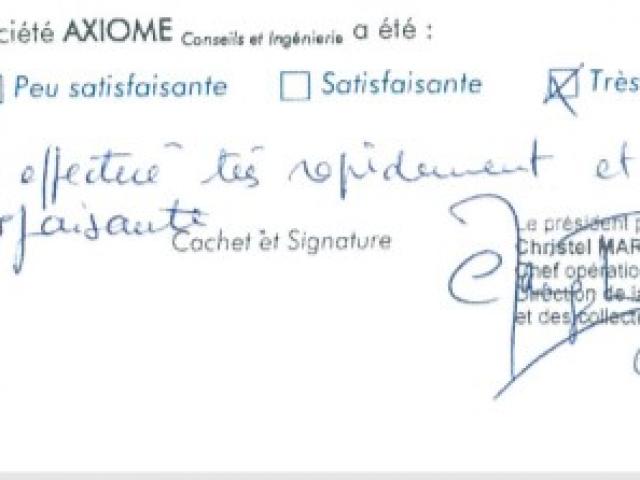 ciété AXIOME Conseils et Ingénierie a été :
Peu satisfaisante Satisfaisante Très
effectué très rapidement et
rfaisante
Cachet et Signature
Le président p
Christel MAR
Chef opération
Direction de la
et des collecti